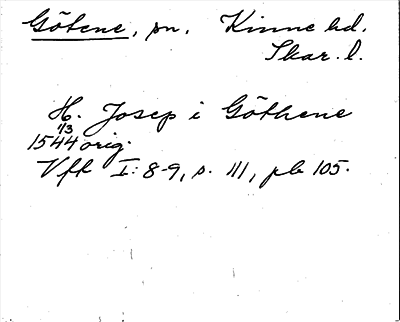 Götene, sn. Kinne hd.
Skar. l.
H. Josep i Göthene
1/3
1544 orig.
Vft I: 8-9, s. 111, pb 105.